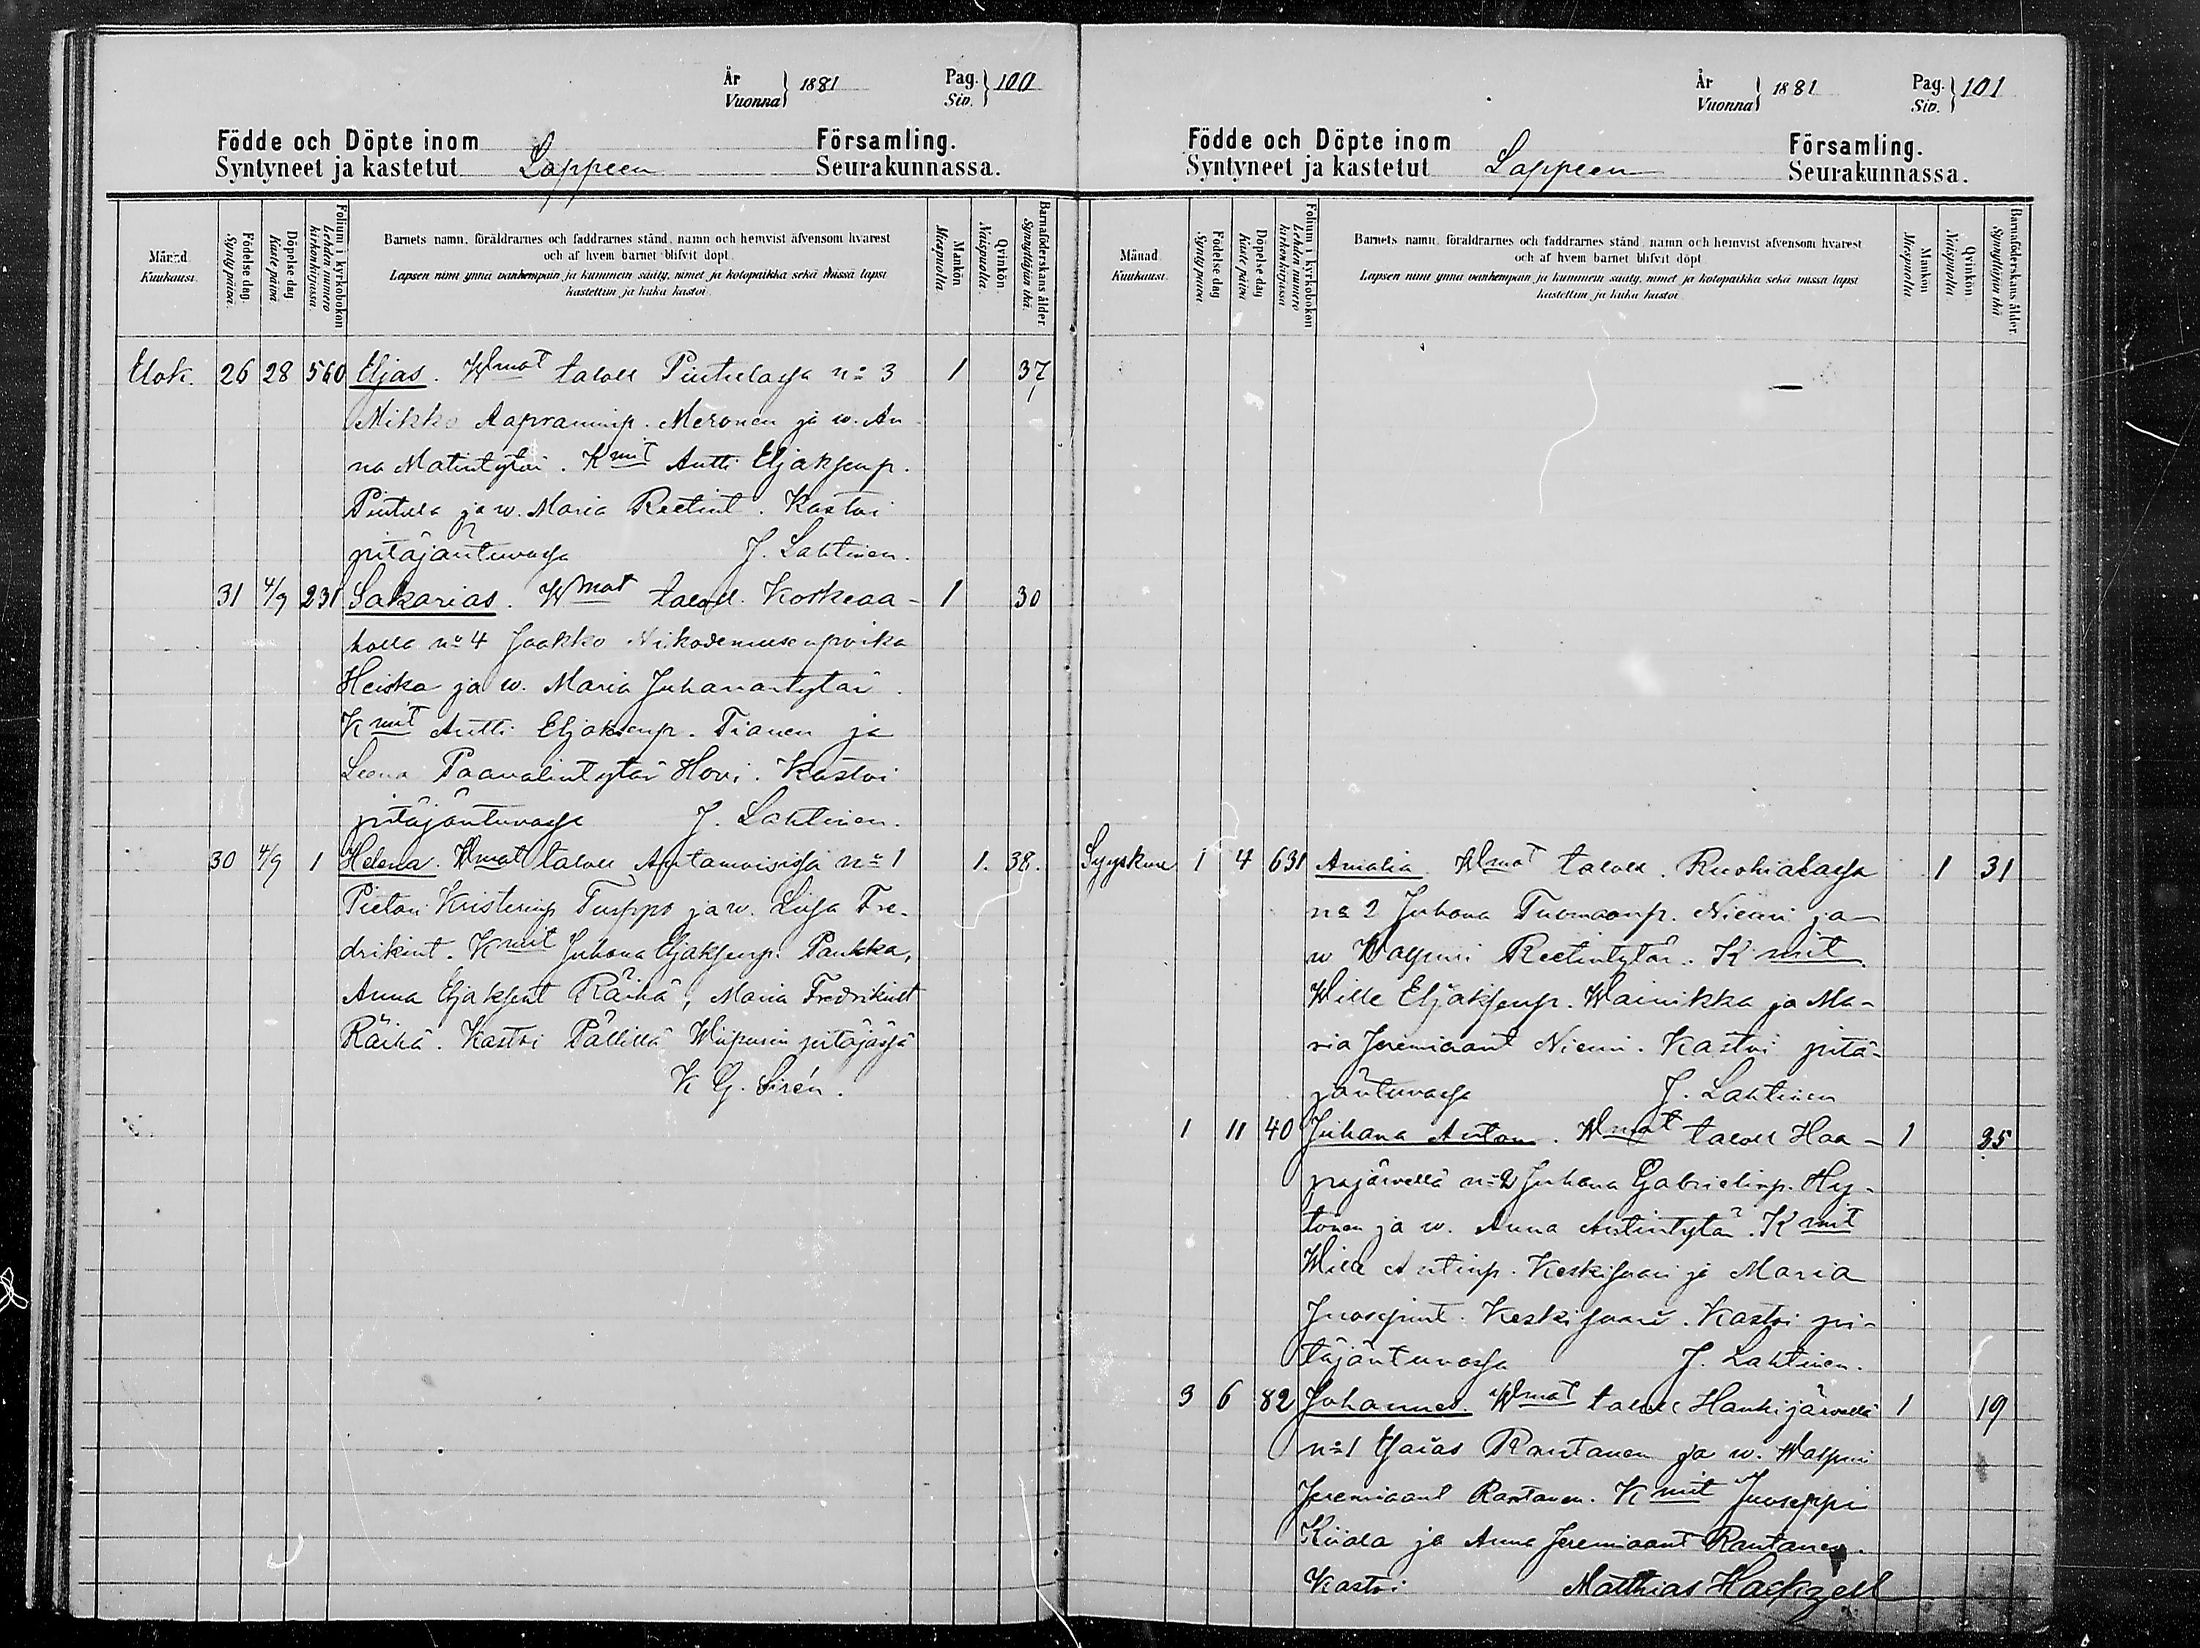 År
Vuonna } 1881
Pag.
Siv. } 100
Födde och Döpte inom
Syntyneet ja kastetut Lappeen
Församling.
Seurakunnassa.
Månad.
Kuukausi.
Födelse dag.
Synty päivä.
Döpelse dag
Kaste päivä.
Folium i kyrkoboken
Lehden numero
kirkonkirjassa.
Barnets namn, föräldrarnes och faddrarnes stånd, namn och hemvist äfvensom hvarest
och af hvem barnet blifvit döpt.
Lapsen nimi ynnä vanhempain ja kummein sääty, nimet ja kotopaikka sekä missä lapsi
kastettiin ja kuka kastoi.
Mankön
Miespuolia.
Qvinkön.
Naispuolia.
Barnaföderskans ålder
Synnyttäjän ikä.
Elok. 26 28 560 Eljas. Wmat taloll Pintulassa no 3 1 37
Mikko Aapraminp. Meronen ja w. An
na Matintytär. Kmit Antti Eljaksenp.
Pintula ja w. Maria Reetint. Kastoi
pitäjäntuvassa J. Lahtinen.
31 4/9 231 Sakarias. Wmat taloll. Korkeaa- 1 30
holla no 4 Jaakko Nikodemuksenpoika
Heiska ja w. Maria Juhanantytär.
Kmit Antti Eljaksenp. Tianen ja
Leena Paavalintytär Hovi. Kastoi
pitäjäntuvassa J. Lahtinen.
30 4/9 1 Helena. Wmat taloll no 1 1. 38.
Pietari Kristerinp ja w. Liisa Fre-
drikint. Kmit Juhana Eljaksenp. Paukka,
Anna Eljaksent Räihä, Maria Fredrikint
Räihä. Kastoi Pällillä Wiipurin pitäjässä
K G. Sirén.
År
Vuonna } 1881
Pag.
Siv. } 101
Födde och Döpte inom
Syntyneet ja kastetut Lappeen
Församling.
Seurakunnassa.
Månad
Kuukausi.
Födelse dag
Synty päivä
Döpelse dag
Kaste päivä
Folium i kyrkoboken
Lehden numero
kirkonkirjassa
Barnets namn, föräldrarnes och faddrarnes stånd, namn och hemvist äfvensom hvarest
och af hvem barnet blifvit döpt
Lapsen nimi ynnä vanhempain ja kummein sääty, nimet ja kotopaikka sekä missä lapsi
kastettiin ja kuka kastoi
Mankön
Miespuolia
Qvinkön
Naispuolia
Barnaföderskans ålder
Synnyttäjän ikä
Syyskuu 1 4 631 Amalia. Wmat taloll. Ruohialassa 1 31
no 2 Juhana Tuomaanp. Niemi ja
w Walpuri Reetintytär. Kmit
Wille Eljaksenp. Wainikka ja Ma-
ria Jeremiaant Niemi. Kastoi pitä-
jäntuvassa J. Lahtinen
1 11 40 Juhana Anton. Wmat taloll Haa- 1 35
pajärvellä no 2 Juhana Gabrielinp. Hy-
tönen ja w. Anna Antintytär. Kmit
Wille Antinp. Keskisaari ja Maria
Juosepint. Keskisaari. Kastoi pi-
täjäntuvassa J. Lahtinen.
3 6 82 Johannes. Wmat taloll Hankijärvellä 1 19
no 1 Esaias Rantanen ja w. Walpuri
Jeremiaant Rantanen. Kmit Juoseppi
Kiiala ja Anna Jeremiaant Rantanen.
Kastoi Matthias Hackzell